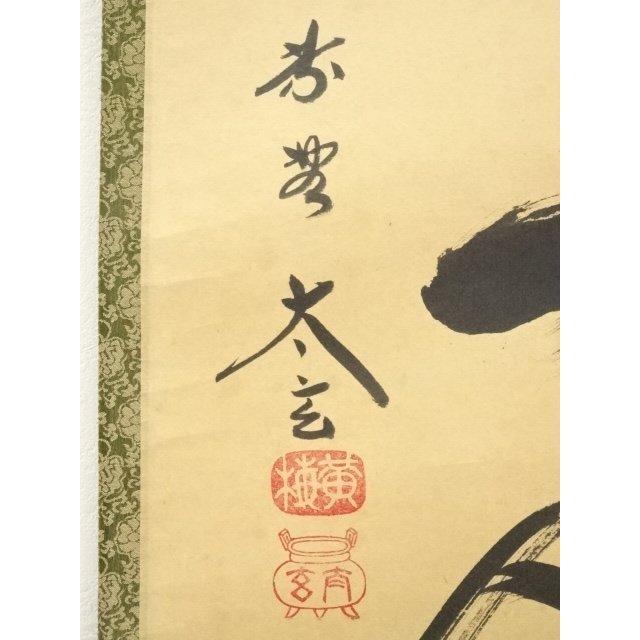 紫野
太玄
黄梅
太玄